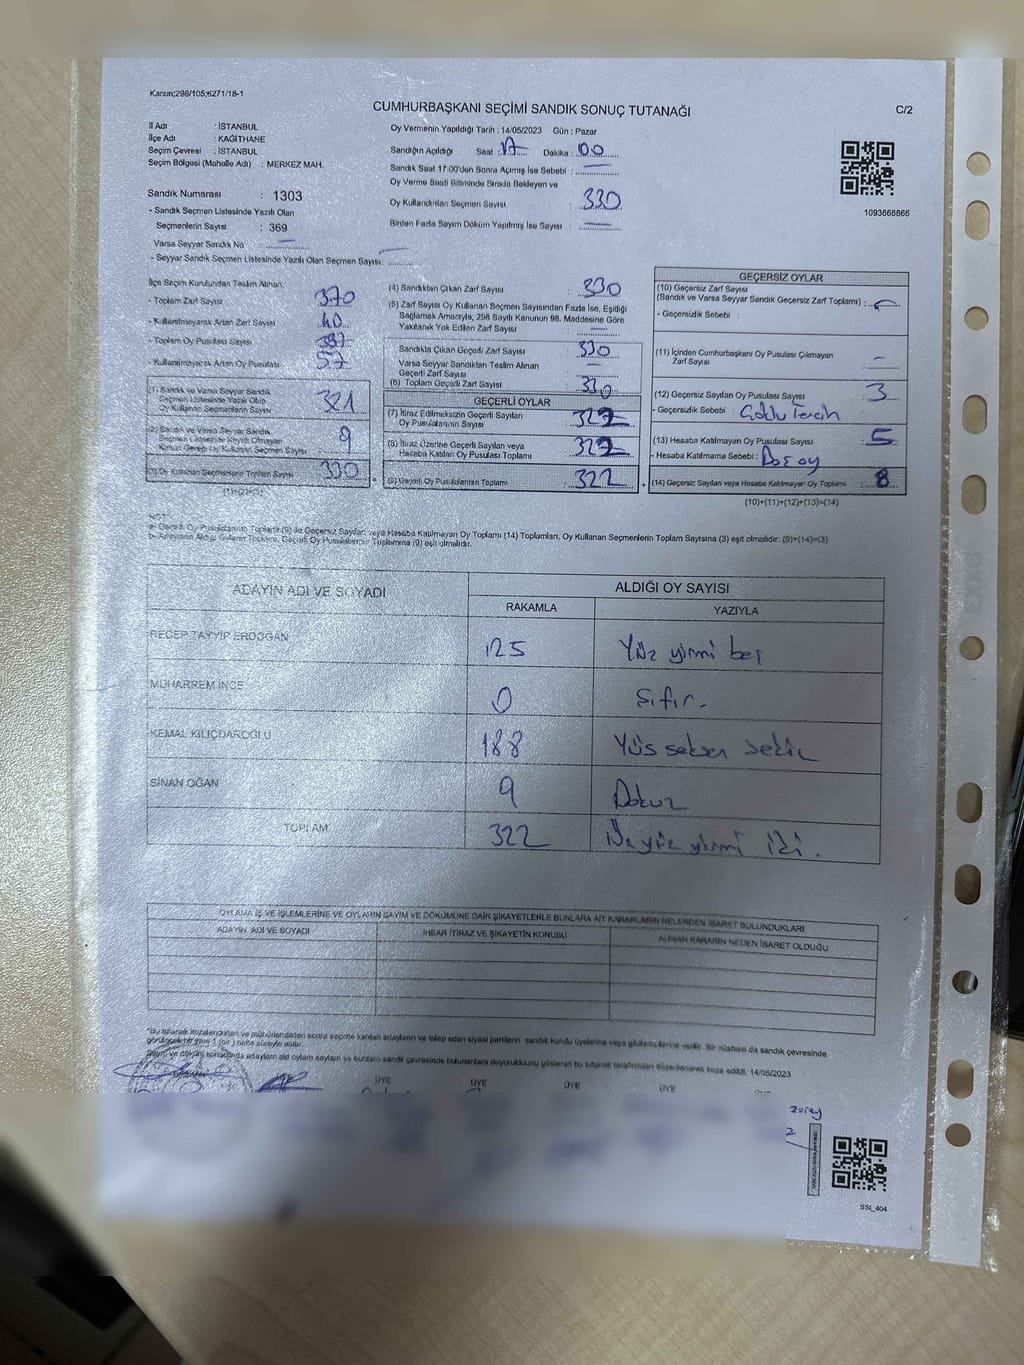 Kanun;298/105;6271/18-1
CUMHURBAŞKANI SEÇİMİ SANDIK SONUÇ TUTANAĞI
C/2
İl Adı : İSTANBUL
İlçe Adı : KAĞITHANE
Seçim Çevresi : İSTANBUL
Seçim Bölgesi (Mahalle Adı) : MERKEZ MAH.
Sandık Numarası : 1303
- Sandık Seçmen Listesinde Yazılı Olan
Seçmenlerin Sayısı : 369
Varsa Seyyar Sandık No
- Seyyar Sandık Seçmen Listesinde Yazılı Olan Seçmen Sayısı:
Oy Vermenin Yapıldığı Tarih : 14/05/2023 Gün : Pazar
Sandığın Açıldığı Saat : 17 Dakika : 00
Sandık Saat 17:00'den Sonra Açılmış İse Sebebi :
Oy Verme Saati Bitiminde Sırada Bekleyen ve
Oy Kullandırılan Seçmen Sayısı : 330
Birden Fazla Sayım Döküm Yapılmış İse Sayısı :
1093666866
İlçe Seçim Kurulundan Teslim Alınan;
- Toplam Zarf Sayısı 370
- Kullanılmayarak Artan Zarf Sayısı 40
- Toplam Oy Pusulası Sayısı
- Kullanılmayarak Artan Oy Pusulası 57
(1) Sandık ve Varsa Seyyar Sandık
Seçmen Listesinde Yazılı Olup
Oy Kullanan Seçmenlerin Sayısı 321
(2) Sandık ve Varsa Seyyar Sandık
Seçmen Listesinde Kayıtlı Olmayan
Kanun Gereği Oy Kullanan Seçmen Sayısı 9
(3) Oy Kullanan Seçmenlerin Toplam Sayısı 330
(1)+(2)=(3)
(4) Sandıktan Çıkan Zarf Sayısı : 330
(5) Zarf Sayısı Oy Kullanan Seçmen Sayısından Fazla İse, Eşitliği
Sağlamak Amacıyla, 298 Sayılı Kanunun 98. Maddesine Göre
Yakılarak Yok Edilen Zarf Sayısı
Sandıkta Çıkan Geçerli Zarf Sayısı : 330
Varsa Seyyar Sandıktan Teslim Alınan
Geçerli Zarf Sayısı
(6) Toplam Geçerli Zarf Sayısı : 330
GEÇERLİ OYLAR
(7) İtiraz Edilmeksizin Geçerli Sayılan
Oy Pusulalarının Sayısı : 322
(8) İtiraz Üzerine Geçerli Sayılan veya
Hesaba Katılan Oy Pusulası Toplamı : 322
(9) Geçerli Oy Pusulalarının Toplamı : 322
GEÇERSİZ OYLAR
(10) Geçersiz Zarf Sayısı
(Sandık ve Varsa Seyyar Sandık Geçersiz Zarf Toplamı) :
- Geçersizlik Sebebi :
(11) İçinden Cumhurbaşkanı Oy Pusulası Çıkmayan
Zarf Sayısı
(12) Geçersiz Sayılan Oy Pusulası Sayısı : 3
- Geçersizlik Sebebi : Çoklu Tercih
(13) Hesaba Katılmayan Oy Pusulası Sayısı : 5
- Hesaba Katılmama Sebebi : Boş oy
(14) Geçersiz Sayılan veya Hesaba Katılmayan Oy Toplamı : 8
(10)+(11)+(12)+(13)=(14)
NOT:
a- Geçerli Oy Pusulalarının Toplamı (9) ile Geçersiz Sayılan veya Hesaba Katılmayan Oy Toplamı (14) Toplamları, Oy Kullanan Seçmenlerin Toplam Sayısına (3) eşit olmalıdır. (9)+(14)=(3)
b- Adayların Aldığı Oyların Toplamı, Geçerli Oy Pusulalarının Toplamına (9) eşit olmalıdır.
ADAYIN ADI VE SOYADI ALDIĞI OY SAYISI
RAKAMLA YAZIYLA
RECEP TAYYİP ERDOĞAN 125 Yüz yirmi beş
MUHARREM İNCE 0 Sıfır.
KEMAL KILIÇDAROĞLU 188 Yüs seksen sekiz
SİNAN OĞAN 9 Dokuz
TOPLAM 322 Üç yüz yirmi iki.
OYLAMA İŞ VE İŞLEMLERİNE VE OYLARIN SAYIM VE DÖKÜMÜNE DAİR ŞİKAYETLERLE BUNLARA AİT KARARLARIN NELERDEN İBARET BULUNDUKLARI
ADAYIN ADI VE SOYADI İHBAR İTİRAZ VE ŞİKAYETİN KONUSU ALINAN KARARIN NEDEN İBARET OLDUĞU
*Bu tutanak imzalandıktan ve mühürlendikten sonra seçime katılan adayların ve talep eden siyasi partilerin sandık kurulu üyelerine veya gözlemcilerine verilir. Bir nüshası da sandık çevresinde
görülecek bir yere 1 (bir) hafta süreyle asılır.
Sayım ve döküm sonucunda adayların aldığı oyların sayısını ve bunların sandık çevresinde bulunanlara duyurulduğunu gösteren bu tutanak tarafımızdan düzenlenerek imza edildi. 14/05/2023
ÜYE ÜYE ÜYE ÜYE
SSI_404
EXXO